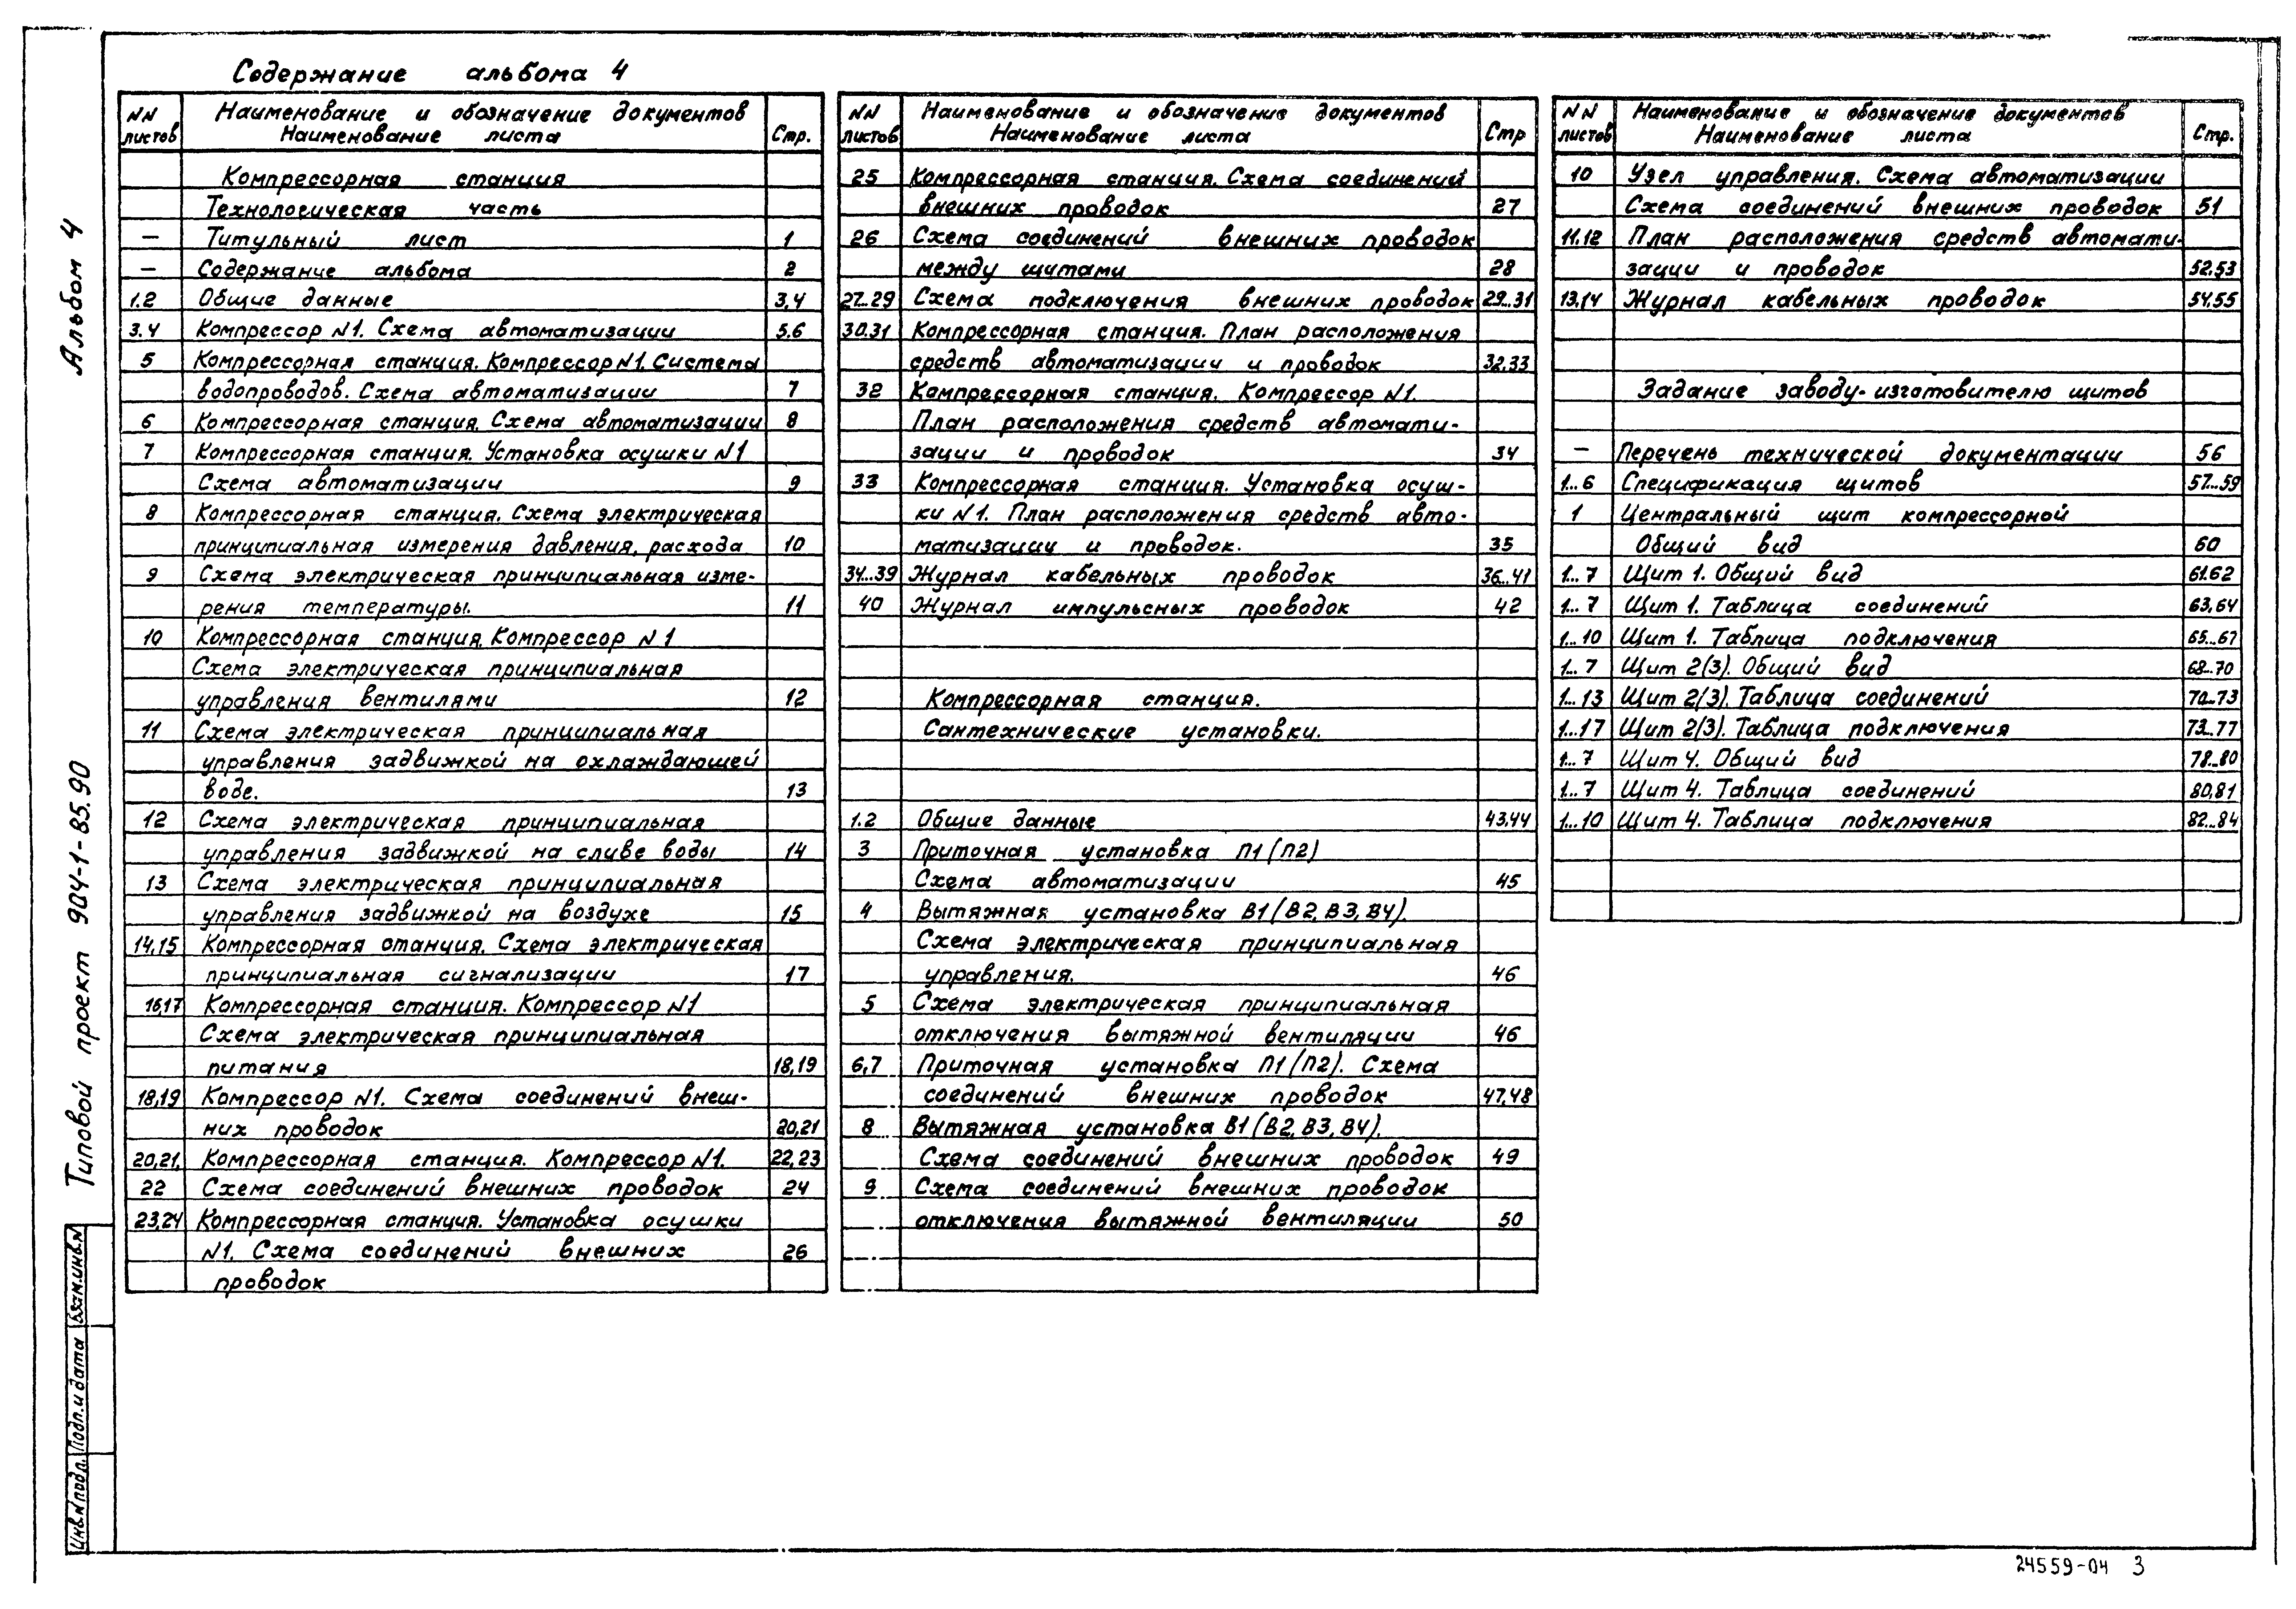 Содержание альбома 4
NN листов
Наименование и обозначение документов
Наименование листа
Стр.
Компрессорная станция
Технологическая часть
— Титульный лист 1
— Содержание альбома 2
1.2 Общие данные 3,4
3.4 Компрессор N1. Схема автоматизации 5.6
5 Компрессорная станция. Компрессор N1. Система
водопроводов. Схема автоматизации 7
6 Компрессорная станция. Схема автоматизации 8
7 Компрессорная станция. Установка осушки N1
Схема автоматизации 9
8 Компрессорная станция. Схема электрическая
принципиальная измерения давления, расхода 10
9 Схема электрическая принципиальная изме-
рения температуры. 11
10 Компрессорная станция. Компрессор N1
Схема электрическая принципиальная
управления вентилями 12
11 Схема электрическая принципиальная
управления задвижкой на охлаждающей
воде. 13
12 Схема электрическая принципиальная
управления задвижкой на сливе воды 14
13 Схема электрическая принципиальная
управления задвижкой на воздухе 15
14,15 Компрессорная станция. Схема электрическая
принципиальная сигнализации 17
16,17 Компрессорная станция. Компрессор N1
Схема электрическая принципиальная
питания 18,19
18,19 Компрессор N1. Схема соединений внеш-
них проводок 20,21
20,21, Компрессорная станция. Компрессор N1. 22,23
22 Схема соединений внешних проводок 24
23,24 Компрессорная станция. Установка осушки
N1. Схема соединений внешних 26
проводок
NN листов
Наименование и обозначение документов
Наименование листа
Стр
25 Компрессорная станция. Схема соединений
внешних проводок 27
26 Схема соединений внешних проводок
между щитами 28
27...29 Схема подключения внешних проводок 29...31
30.31 Компрессорная станция. План расположения
средств автоматизации и проводок 32,33
32 Компрессорная станция. Компрессор N1.
План расположения средств автомати-
зации и проводок 34
33 Компрессорная станция. Установка осуш-
ки N1. План расположения средств авто-
матизации и проводок. 35
34...39 Журнал кабельных проводок 36...41
40 Журнал импульсных проводок 42
Компрессорная станция.
Сантехнические установки.
1.2 Общие данные 43,44
3 Приточная установка П1(П2)
Схема автоматизации 45
4 Вытяжная установка В1(В2,В3,В4).
Схема электрическая принципиальная
управления. 46
5 Схема электрическая принципиальная
отключения вытяжной вентиляции 46
6,7 Приточная установка П1(П2). Схема
соединений внешних проводок 47,48
8 Вытяжная установка В1(В2,В3,В4).
Схема соединений внешних проводок 49
9 Схема соединений внешних проводок
отключения вытяжной вентиляции 50
NN листов
Наименование и обозначение документов
Наименование листа
Стр.
10 Узел управления. Схема автоматизации
Схема соединений внешних проводок 51
11.12 План расположения средств автомати-
зации и проводок 52.53
13,14 Журнал кабельных проводок 54,55
Задание заводу-изготовителю щитов
— Перечень технической документации 56
1...6 Спецификация щитов 57...59
1 Центральный щит компрессорной
Общий вид 60
1...7 Щит 1. Общий вид 61.62
1...7 Щит 1. Таблица соединений 63,64
1...10 Щит 1. Таблица подключения 65...67
1...7 Щит 2(3). Общий вид 68...70
1...13 Щит 2(3). Таблица соединений 70...73
1...17 Щит 2(3). Таблица подключения 73...77
1...7 Щит 4. Общий вид 78...80
1...7 Щит 4. Таблица соединений 80,81
1...10 Щит 4. Таблица подключения 82...84
Альбом 4
Типовой проект 904-1-85.90
Взам.инв.N
Подп.и дата
Инв.N подл.
24559-04 3